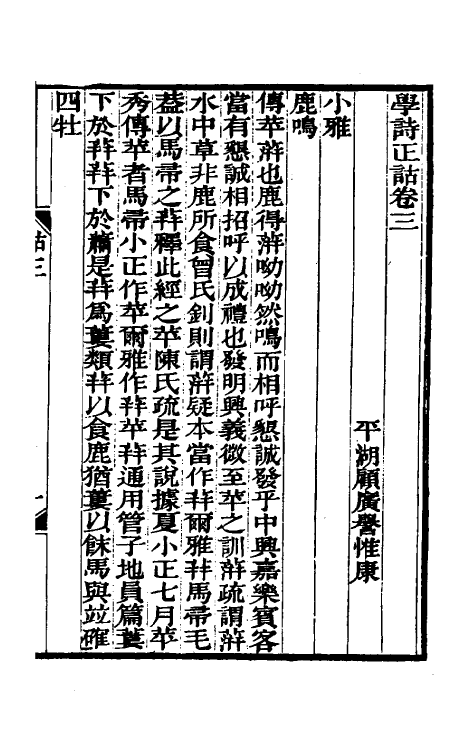 學詩正詁卷三
平湖顧廣譽惟康
小雅
鹿鳴
傳苹蓱也鹿得蓱呦呦然鳴而相呼懇誠發乎中興嘉樂賓客
當有懇誠相招呼以成禮也發明興義微至苹之訓蓱疏謂蓱
水中草非鹿所食曾氏釗則謂蓱疑本當作荓爾雅荓馬帚毛
葢以馬帚之荓釋此經之苹陳氏疏是其說據夏小正七月苹
秀傳苹者馬帚小正作苹爾雅作荓苹荓通用管子地員篇蔞
下於荓荓下於蕭是荓爲蔞類荓以食鹿猶蔞以餗馬與竝確
四牡
詁三
一